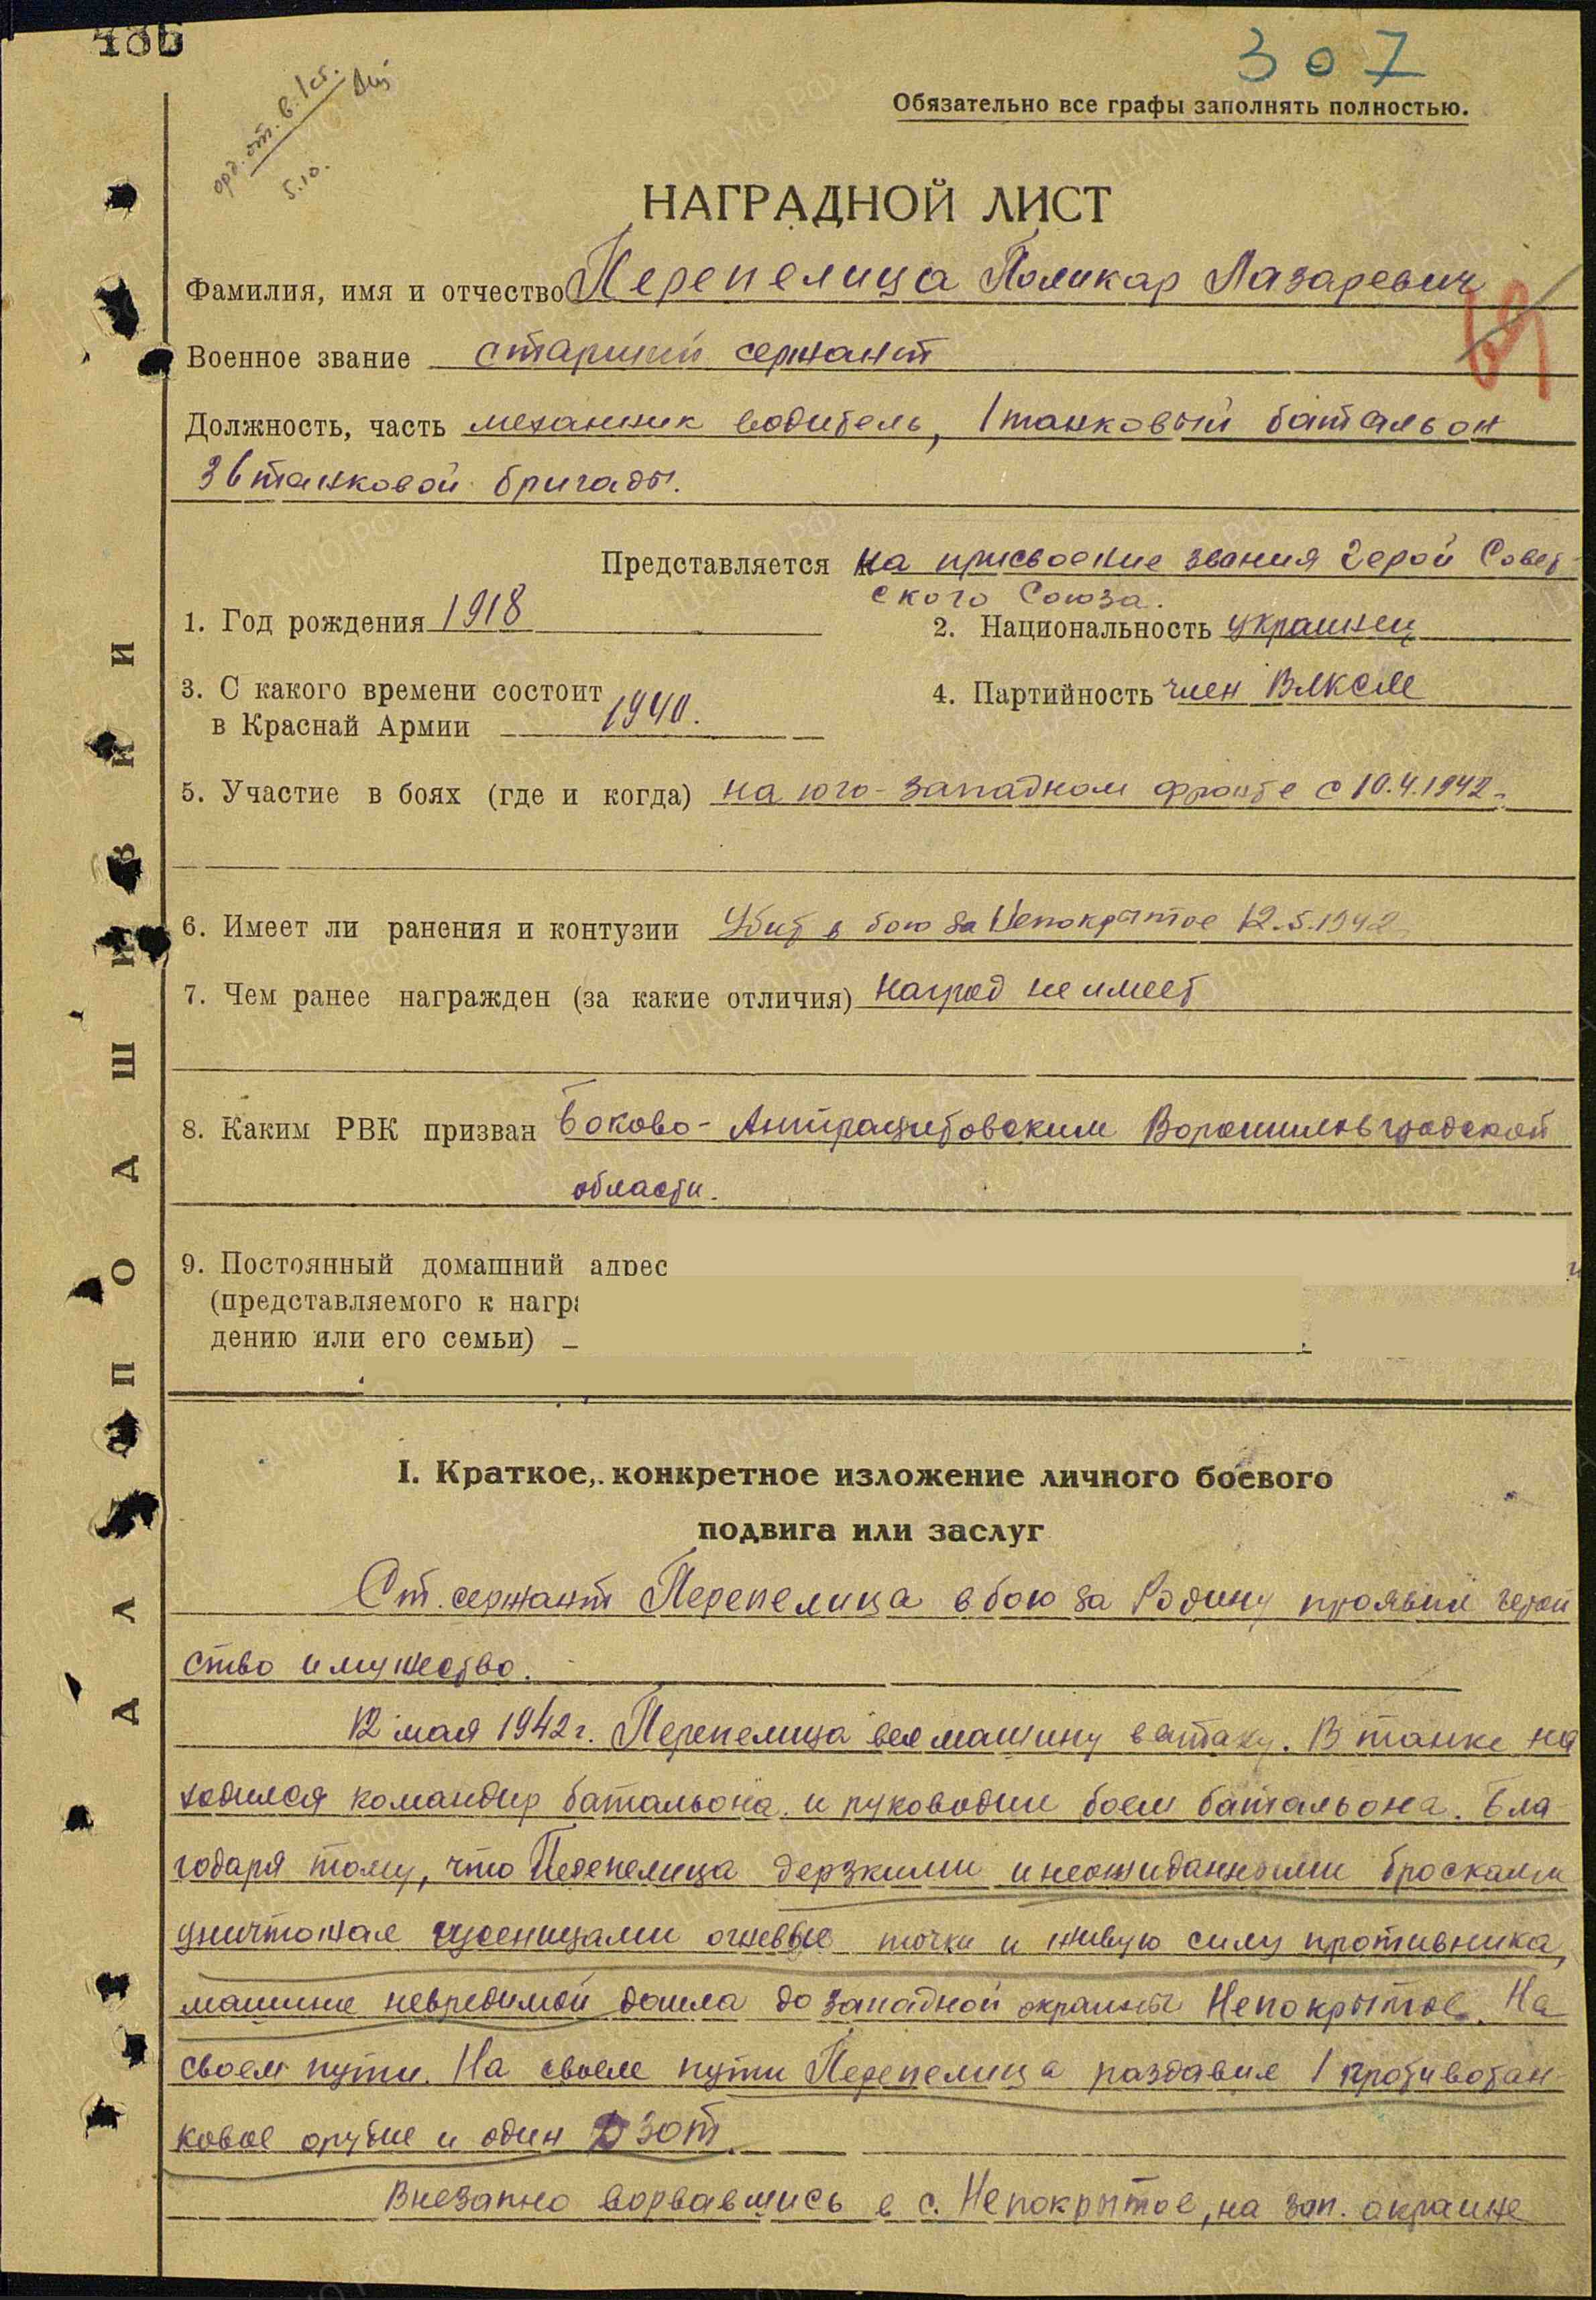 436
307
орд. от. в. 1 ст.
5.10.
Обязательно все графы заполнять полностью.
НАГРАДНОЙ ЛИСТ
Фамилия, имя и отчество Перепелица Поликар Лазаревич
Военное звание старший сержант
Должность, часть механник водитель, 1 танковый батальон
36 танковой бригады.
Представляется на присвоение звания Герой Совет-
ского Союза.
1. Год рождения 1918
2. Национальность украинец
3. С какого времени состоит
в Краснай Армии 1940.
4. Партийность член ВЛКСМ
5. Участие в боях (где и когда) на юго-западном фронте с 10.4.1942г.
6. Имеет ли ранения и контузии Убит в бою за Непокрытое 12.5.1942
7. Чем ранее награжден (за какие отличия) наград не имеет
8. Каким РВК призван Боково-Антрацитовским Ворошиловградской
области.
9. Постоянный домашний адрес
(представляемого к награ
дению или его семьи)
I. Краткое, конкретное изложение личного боевого
подвига или заслуг
Ст. сержант Перепелица в бою за Родину проявил герой
ство и мужество.
12 мая 1942 г. Перепелица вел машину в атаку. В танке на
ходился командир батальона и руководил боем батальона. Бла-
годаря тому, что Перепелица дерзкими и неожиданными бросками
уничтожал гусеницами огневые точки и живую силу противника,
машина невредимой дошла до западной окраины Непокрытое. На
своем пути. На своем пути Перепелица раздавил 1 противотан-
ковое орудие и один ДЗОТ.
Внезапно ворвавшись в с. Непокрытое, на зап. окраине
ДЛЯ ПОДШИВКИ
ЦАМО.РФ